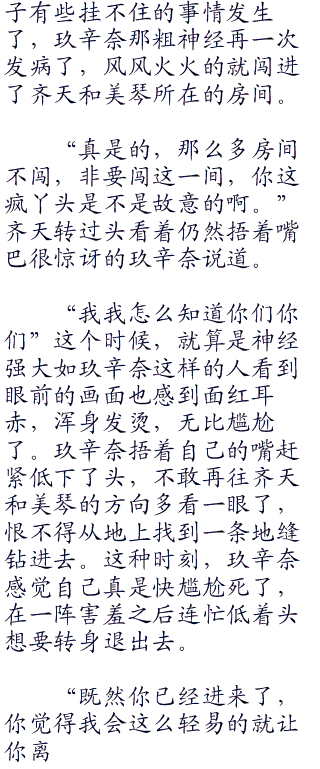 子有些挂不住的事情发生
了，玖辛奈那粗神经再一次
发病了，风风火火的就闯进
了齐天和美琴所在的房间。
“真是的，那么多房间
不闯，非要闯这一间，你这
疯丫头是不是故意的啊。”
齐天转过头看着仍然捂着嘴
巴很惊讶的玖辛奈说道。
“我我怎么知道你们你
们”这个时候，就算是神经
强大如玖辛奈这样的人看到
眼前的画面也感到面红耳
赤，浑身发烫，无比尴尬
了。玖辛奈捂着自己的嘴赶
紧低下了头，不敢再往齐天
和美琴的方向多看一眼了，
恨不得从地上找到一条地缝
钻进去。这种时刻，玖辛奈
感觉自己真是快尴尬死了，
在一阵害羞之后连忙低着头
想要转身退出去。
“既然你已经进来了，
你觉得我会这么轻易的就让
你离